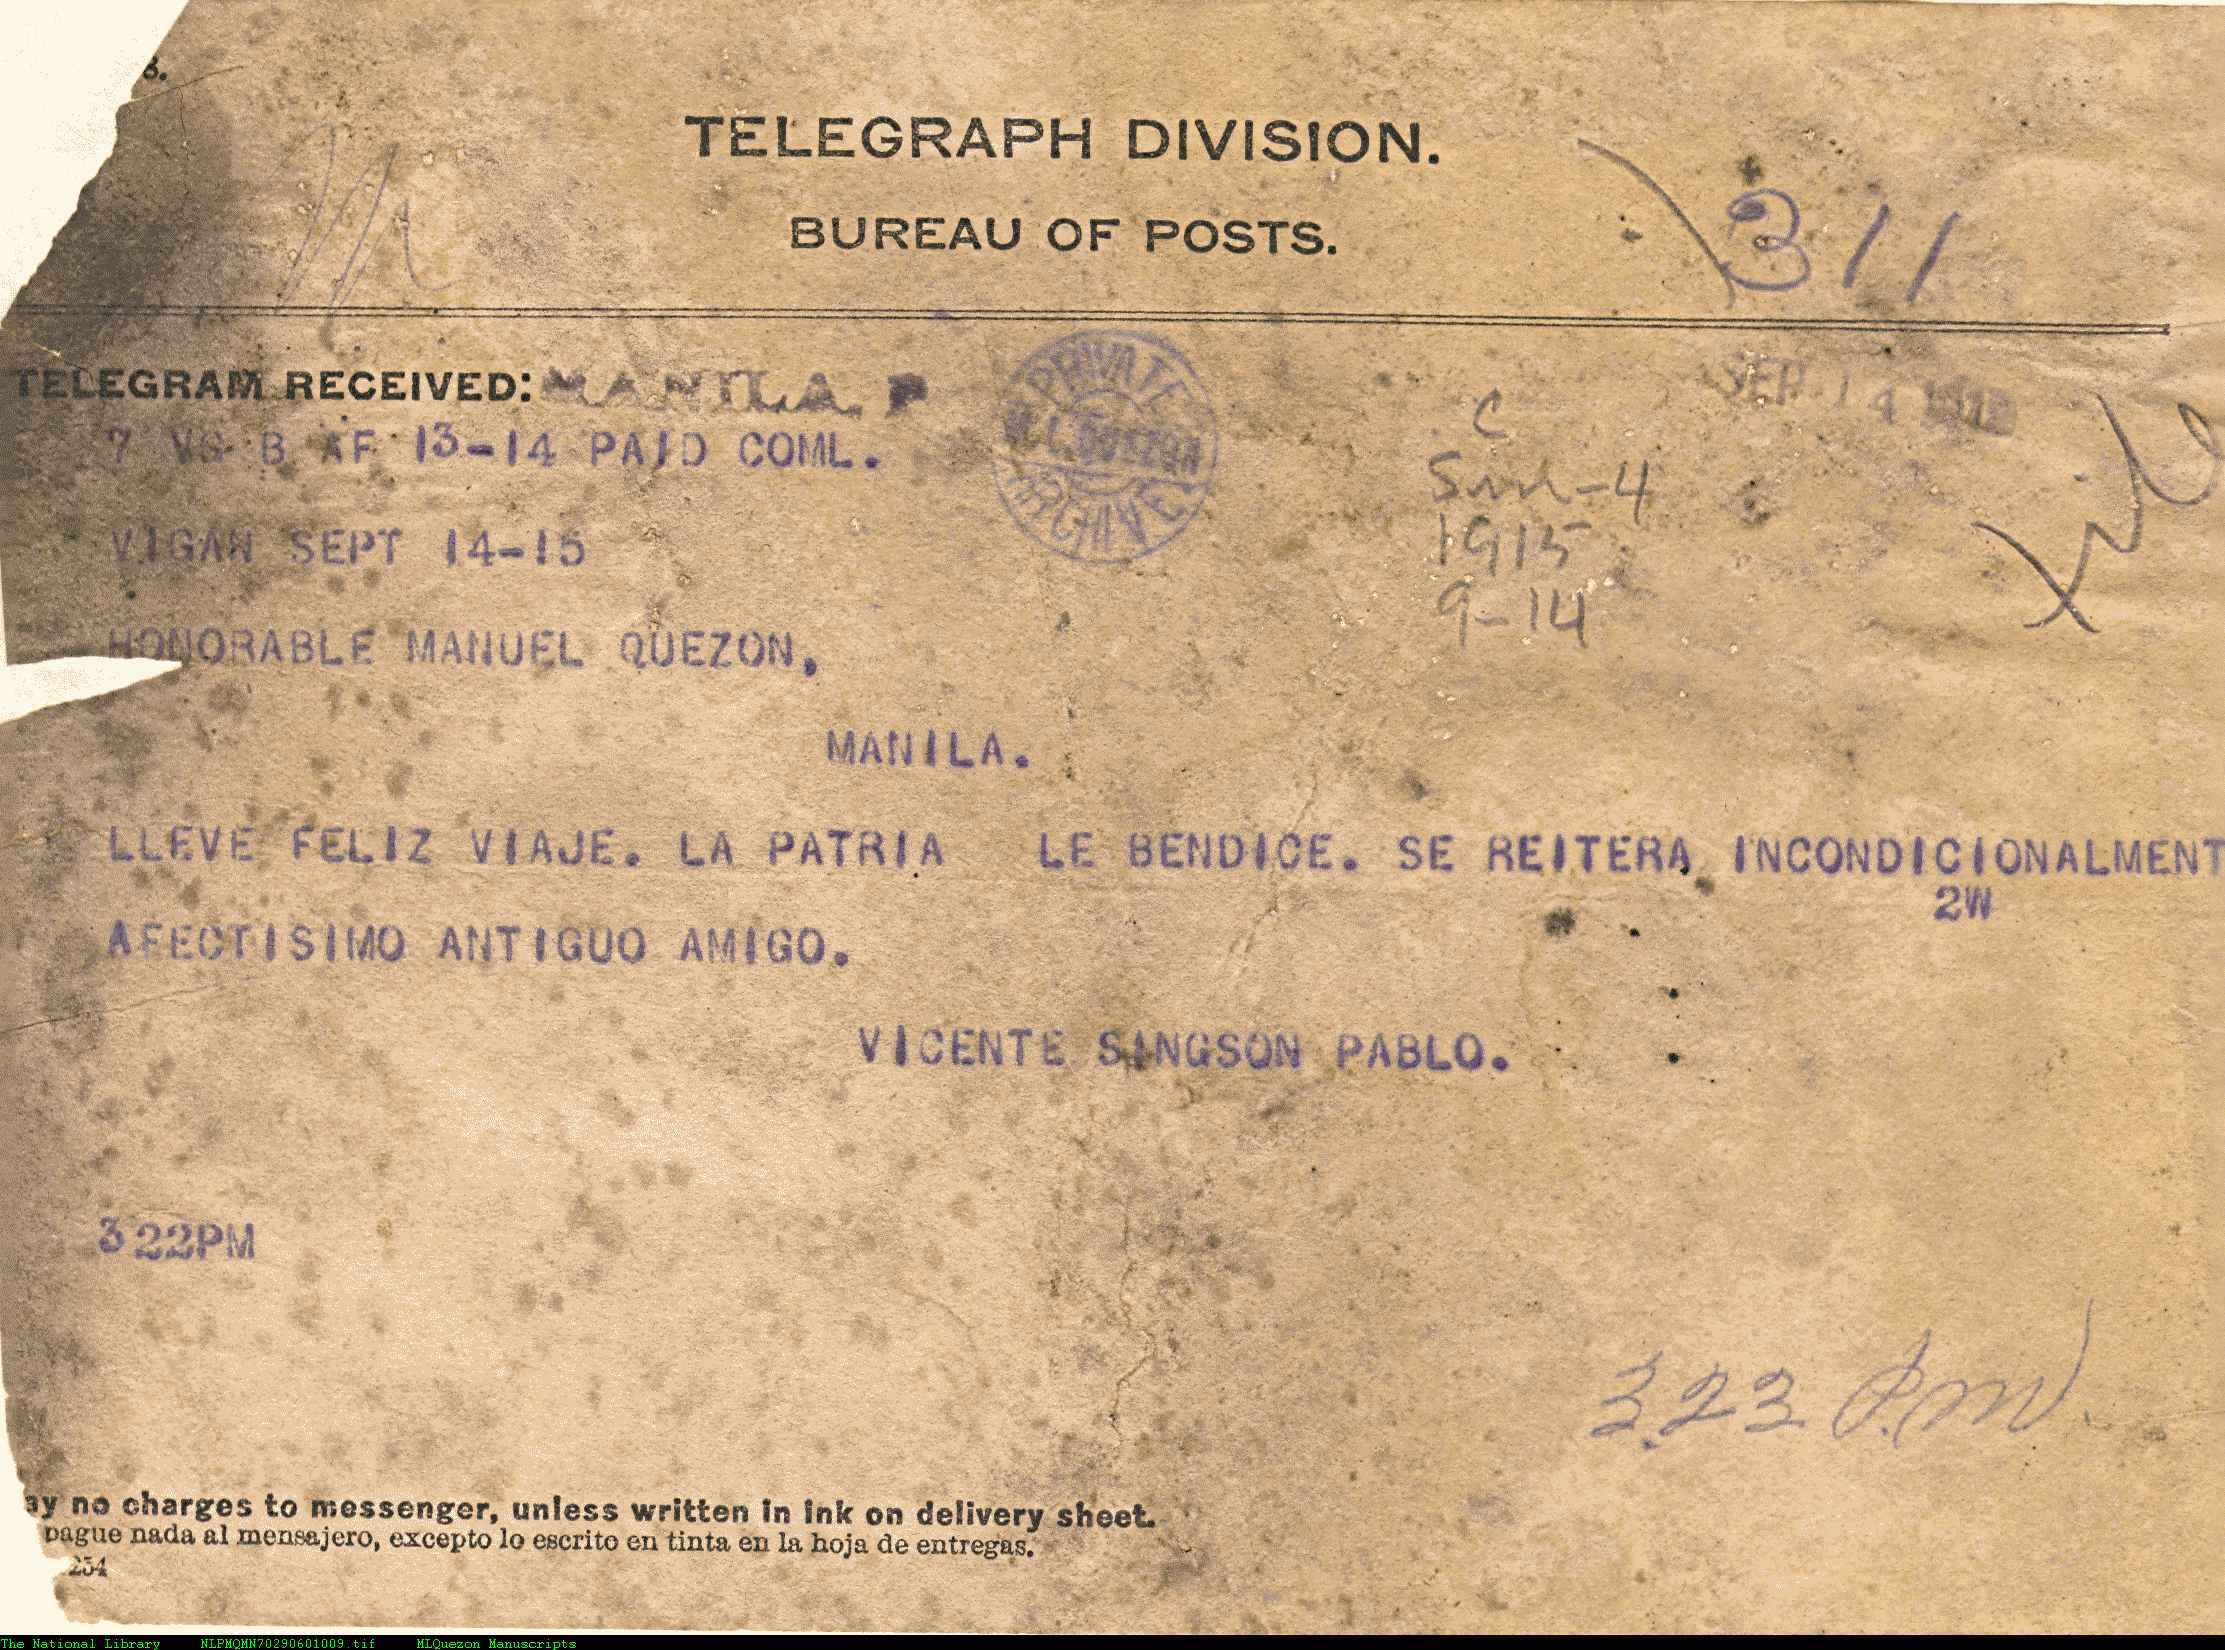 8.
TELEGRAPH DIVISION.
BUREAU OF POSTS.
311
TELEGRAM RECEIVED: MANILA P
PRIVATE
M.L. QUEZON
ARCHIVE
SEP 14
7 VG B AF 13-14 PAID COML.
C
-4
1915
9-14
VIGAN SEPT 14-15
HONORABLE MANUEL QUEZON,
MANILA.
LLEVE FELIZ VIAJE. LA PATRIA LE BENDICE. SE REITERA INCONDICIONALMENT
2W
AFECTISIMO ANTIGUO AMIGO.
VICENTE SINGSON PABLO.
3 22PM
3.23 P.M
ay no charges to messenger, unless written in ink on delivery sheet.
pague nada al mensajero, excepto lo escrito en tinta en la hoja de entregas.
234
The National Library NLPMQMN70290601009.tif MLQuezon Manuscripts